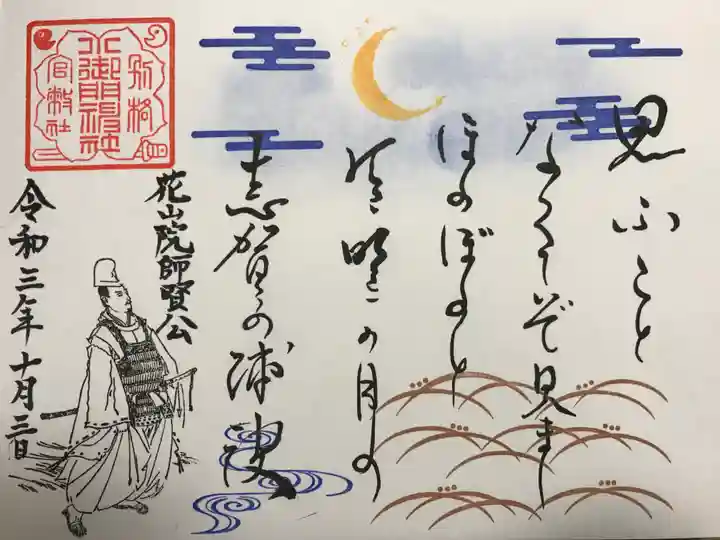 思ふこと
なくてぞ見まし
ほのぼのと
有明の月の
志賀の浦波
別格
小御門神社
官幣社
花山院師賢公
令和三年十月三日